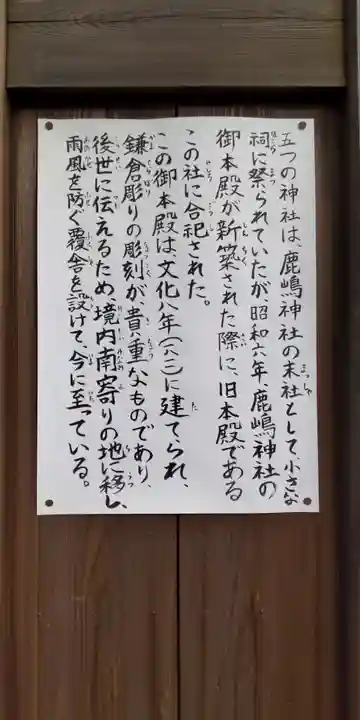 五つの神社は、鹿嶋神社の末社として、小さな
祠に祭られていたが、昭和六年、鹿嶋神社の
御本殿が新築された際に、旧本殿である
この社に合祀された。
この御本殿は、文化八年(一八一一)に建てられ、
鎌倉彫りの彫刻が、貴重なものであり、
後世に伝えるため、境内南寄りの地に移し、
雨風を防ぐ覆舎を設けて、今に至っている。